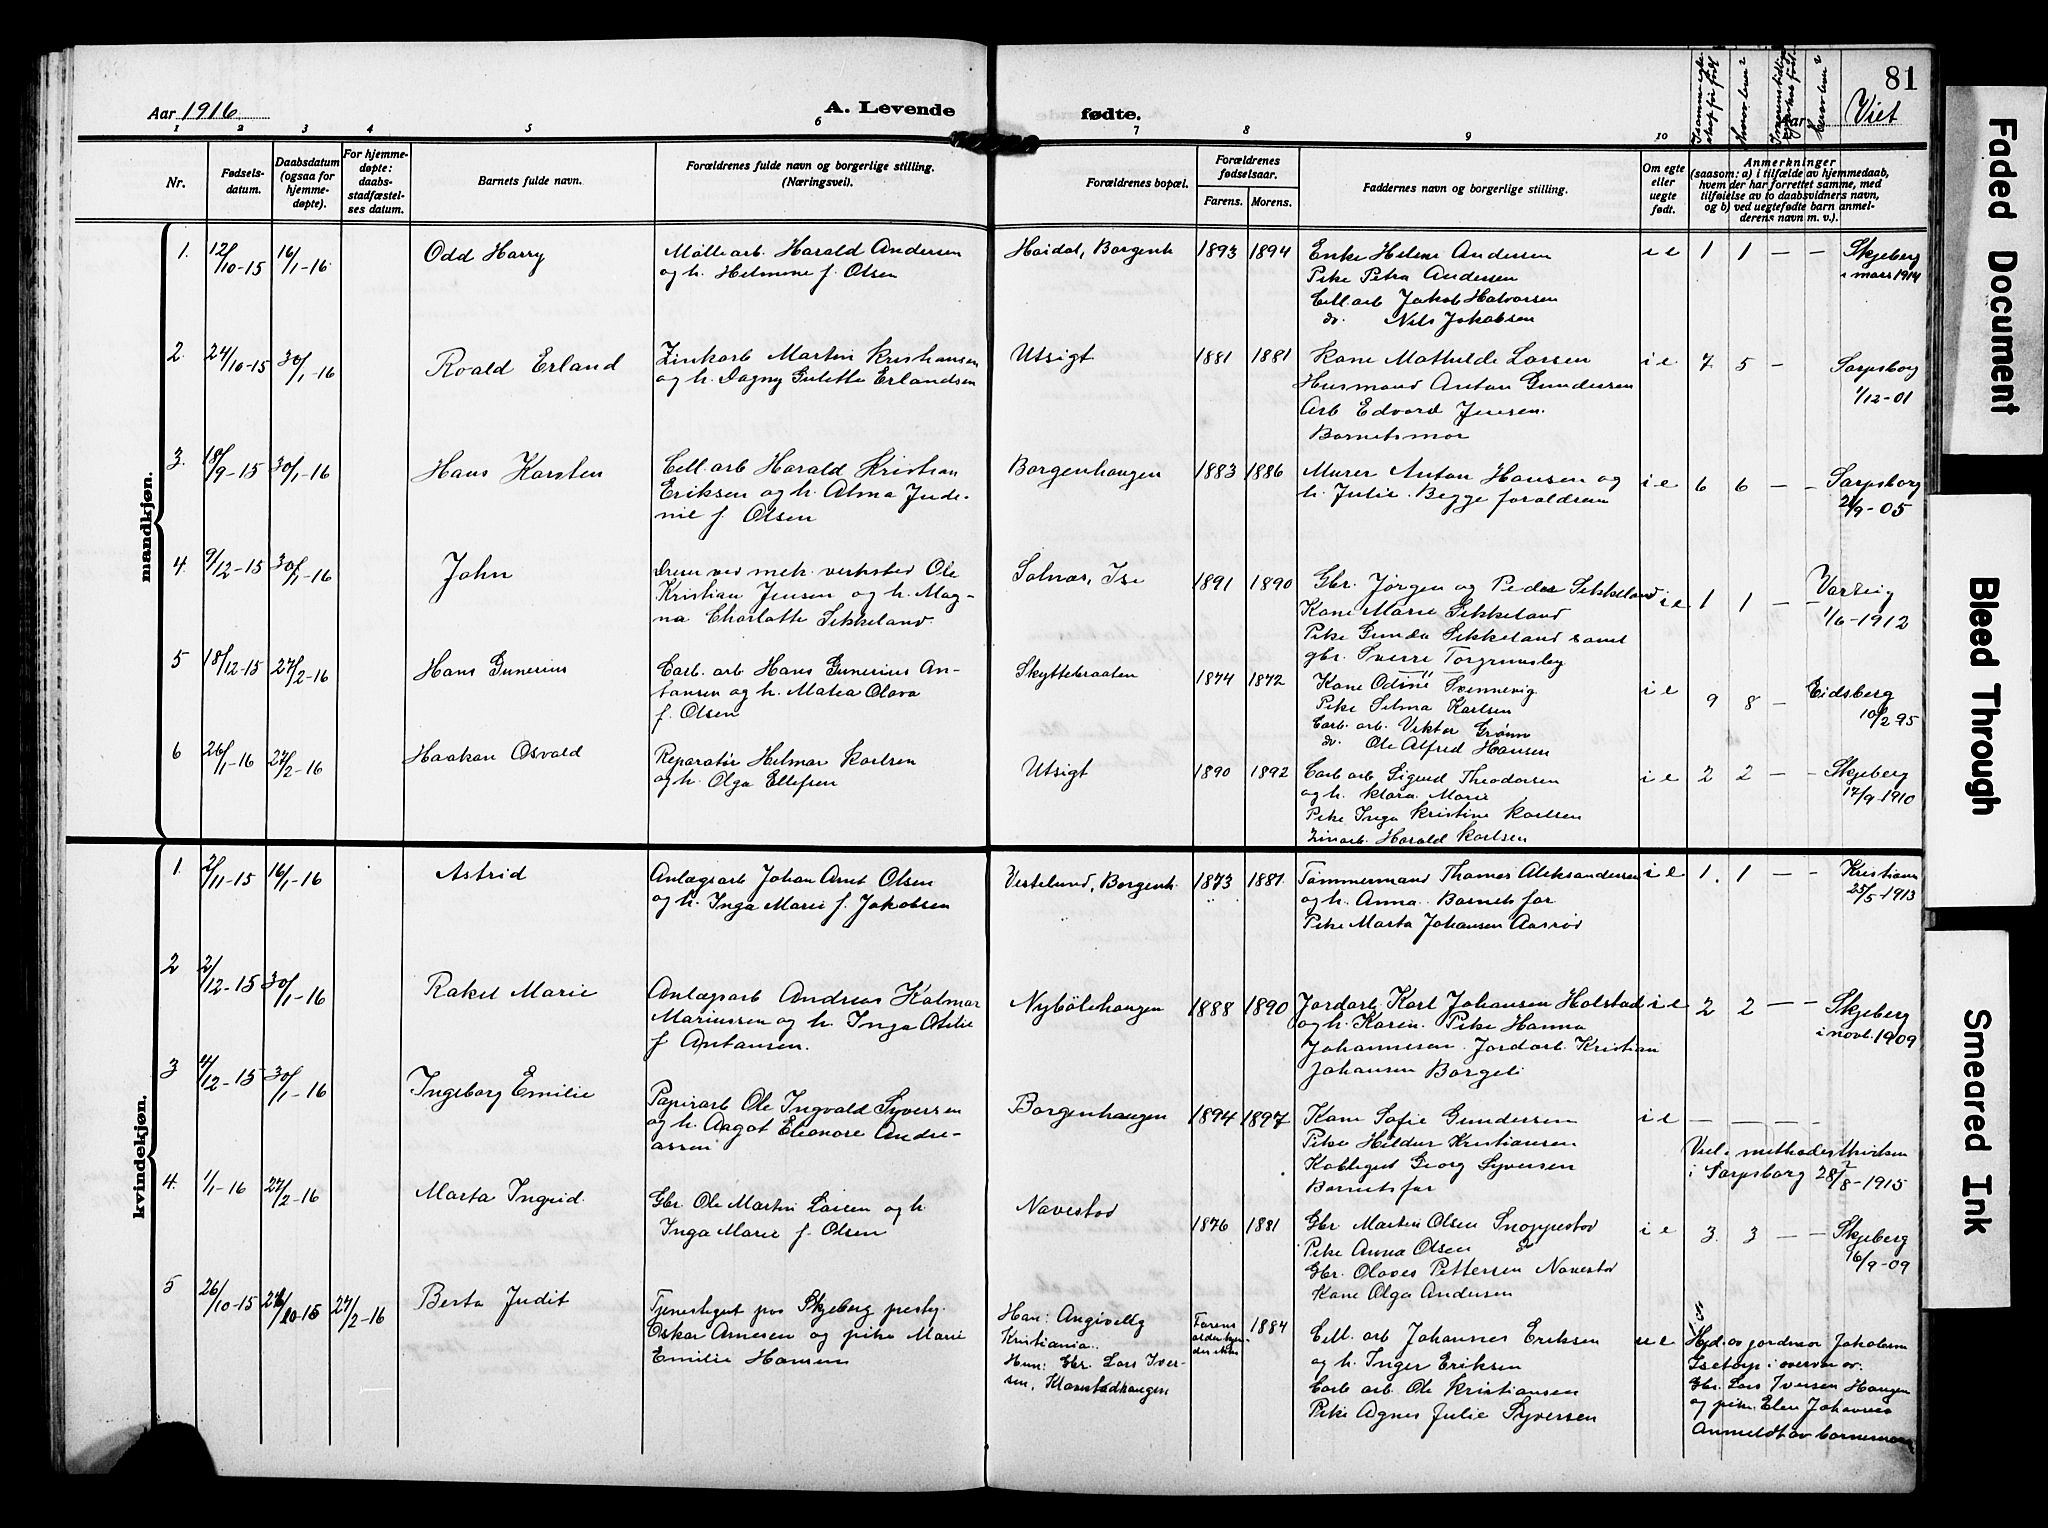 Aar 1916
A. Levende
fødte.
81
Viet
1 2 3 4 5 6 7 8 9 10
Nr.
Fødsels-
datum.
Daabsdatum
(ogsaa for
hjemme-
døpte).
For hjemme-
døpte:
daabs-
stadfæstel-
ses datum.
Barnets fulde navn.
Forældrenes fulde navn og borgerlige stilling.
(Næringsvei).
Forældrenes bopæl.
Forældrenes
fødselsaar.
Farens. Morens.
Faddernes navn og borgerlige stilling.
Om egte
eller
uegte
født.
Anmerkninger
(saasom: a) i tilfælde av hjemmedaab,
hvem der har forrettet samme, med
tilføielse av to daabsvidners navn,
og b) ved uegtefødte barn anmel-
derens navn m. v.).
mandkjøn.
1. 12/10-15 16/1-16 Odd Harry
Møllearb. Harald Andersen
og h. Helmine f. Olsen
Haidal, Borgenh 1893 1894
Enke Helene Andersen
Pike Petra Andersen
Cell.arb Jakob Halvorsen
do. Nils Jakobsen
i e 1 1 — — Skjeberg
i mars 1914
2. 24/10-15 30/1-16 Roald Erland
Zinkarb Martin Kristiansen
og h. Dagny Gulette Erlandsen
Utsigt 1881 1881
Kone Mathilde Larsen
Husmand Anton Gundersen
Arb Edvard Jensen.
Barnets mor
i e 7 5 — Sarpsborg
1/12-01
3. 18/9-15 30/1-16 Hans Karsten
Cell.arb Harald Kristian
Eriksen og h. Alma Jude-
nie f. Olsen
Borgenhaugen 1883 1886
Murer Anton Hansen og
h. Julie. Begge forældrene
i e 6 6 — - Sarpsborg
24/9-05
4. 9/12-15 30/1-16 John
Dreier ved mek. verksted Ole
Kristian Jensen og h. Mag-
na Charlotte Sikkeland.
Solnæs, Ise 1891 1890
Gbr. Jørgen og Peder Sikkeland
Kone Marie Sikkeland
Pike Gunda Sikkeland samt
gbr. Sverre Torgrimsby
i e 1 1 — — Varteig
1/6-1912
5 18/12-15 27/2-16 Hans Gunerius
Carb. arb Hans Gunerius An-
tonsen og h. Matea Olava
f. Olsen
Skyttebraaten 1874 1872
Kone Odine Svennevig
Pike Selma Karlsen
Carb. arb. Viktor Grønn
do. Ole Alfred Hansen
i e 9 8 — Eidsberg
10/2 95
6 26/1-16 27/2-16 Haakon Osvald
Reparatør Helmar Karlsen
og h. Olga Ellefsen
Utsigt 1890 1892
Carb arb Sigurd Theodorsen
og h. Klara Marie
Pike Inga Kristine Karlsen
Zinarb. Harald Karlsen
i e 2 2 — - Skjeberg
17/9-1910
kvindekjøn.
1. 2/11-15 16/1-16 Astrid
Anlægsarb Johan Arnt Olsen
og h. Inga Marie f. Jakobsen
Vestelund, Borgenh. 1873 1881
Tømmermand Thomas Aleksandersen
og h. Anna. Barnets far
Pike Marta Johansen Aasrød
i e 1. 1 — - Kristiania
25/5-1913
2 2/12-15 30/1-16 Rakel Marie
Anlægsarb Andreas Kalmar
Mariussen og h. Inga Otilie
f Antonsen.
Nybølehaugen 1888 1890
Jordarb. Karl Johansen Holstad
og h. Karen. Pike Hanna
Johannesen. Jordarb. Kristian
Johansen Borgeli
i e 2 2 — — Skjeberg
i novb. 1909
3 4/12-15 30/1-16 Ingeborg Emilie
Papirarb Ole Ingvald Syversen
og h. Aagot Eleonore Andre-
assen
Borgenhaugen 1894 1897
Kone Sofie Gundersen
Pike Hildur Kristiansen
Kobbegut Georg Syversen
Barnets far
i e — — — —
Viel. i methodistkirken
i Sarpsborg 28/8-1915
4. 1/1-16 27/2-16 Marta Ingrid.
Gbr Ole Martin Larsen og h
Inga Marie f. Olsen
Navestad 1876 1881
Gbr Martin Olsen Snoppestad
Pike Anna Olsen do
Gbr. Olaves Pettersen Navestad
Kone Olga Andersen
i e 3. 3 — - Skjeberg
16/9-09
5 26/10-15 27/10-15 27/2-16 Berta Judit
Tjenestegut paa Skjeberg prestg.
Oskar Arnesen og pike Marie
Emilie Hansen
Han: Angivelig
Kristiania.
Hun: Gbr. Lars Iver-
sen, Klavestadhaugen
Farens
alder kjen-
des ikke
1884
Cell. arb Johannes Eriksen
og h. Inger Eriksen
Carb arb. Ole Kristiansen
Pike Agnes Julie Syversen
u e
Hjd. av jordmor Jakobsen
Isetorp i overvær av:
Gbr. Lars Iversen Haugen
og pike Elen Johannes
Anmeldt av barnemoren
Faded Document
Bleed Through
Smeared Ink